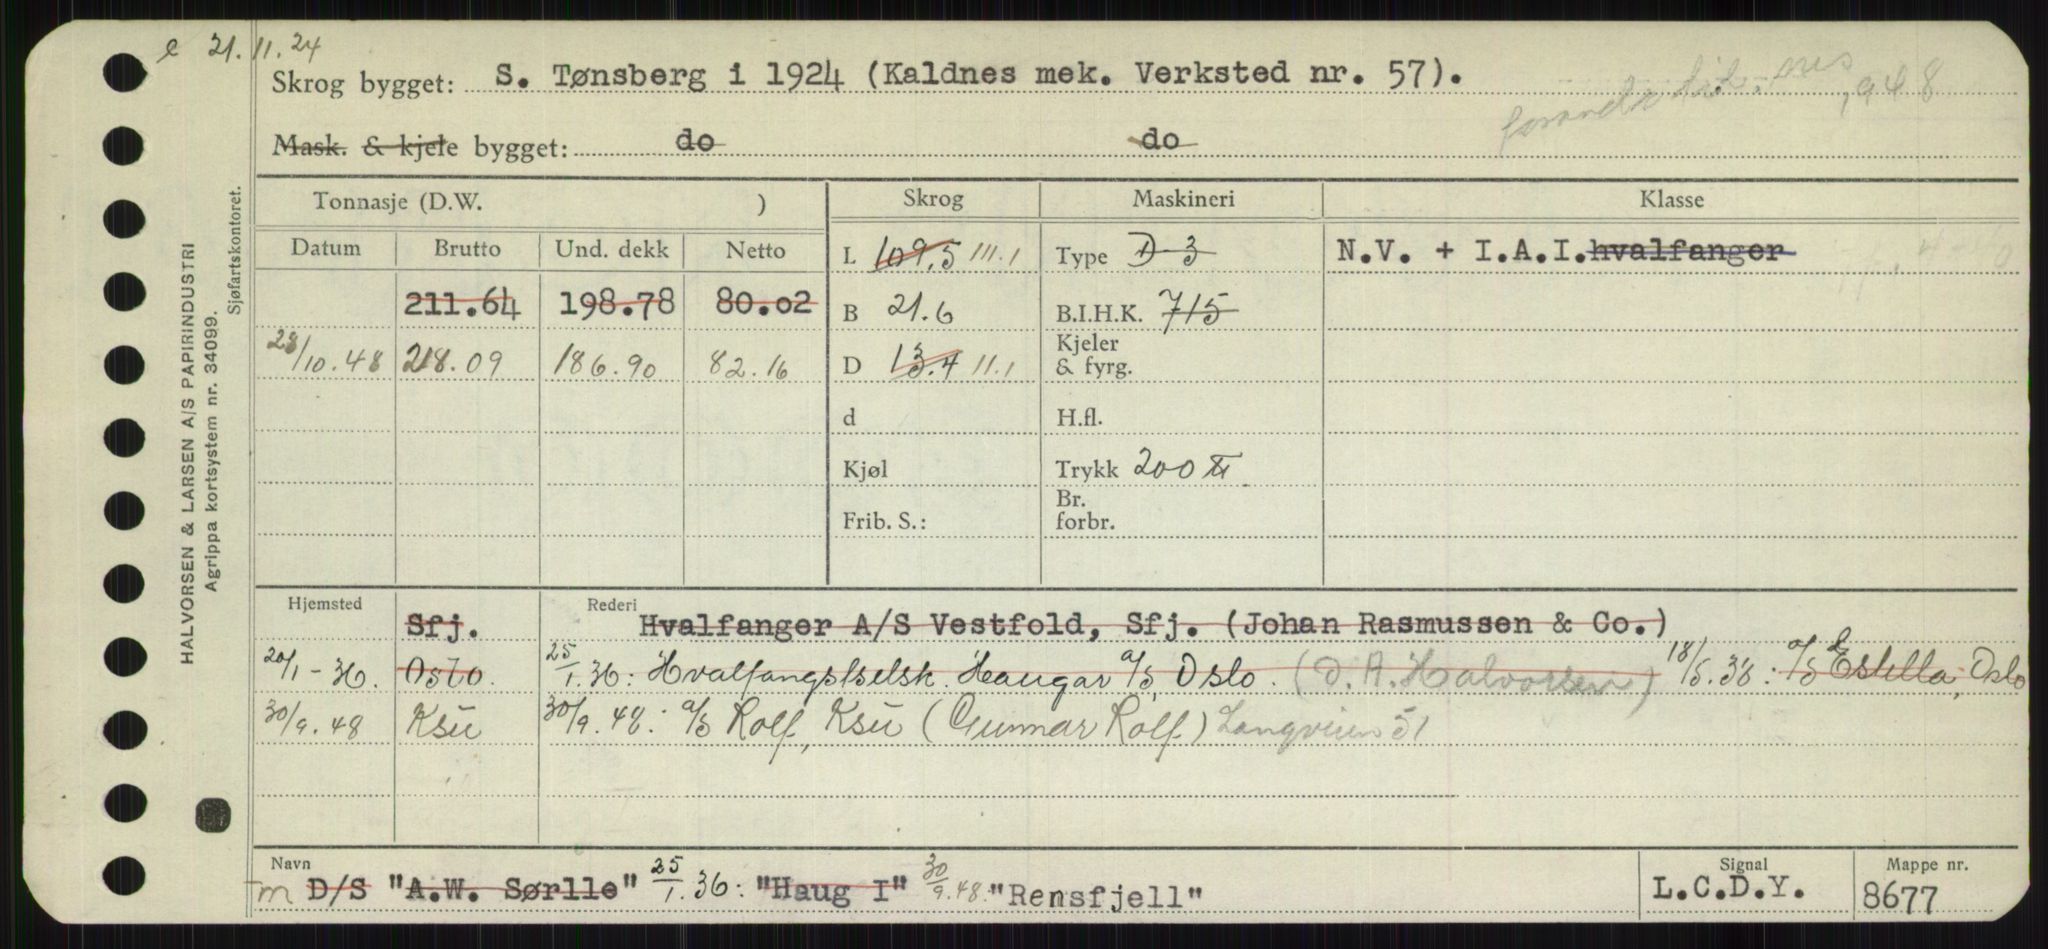 21.11.24
Skrog bygget: S. Tønsberg i 1924 (Kaldnes mek. Verksted nr. 57).
948
Mask. & kjele bygget: do do
HALVORSEN & LARSEN A/S PAPIRINDUSTRI
Agrippa kortsystem nr. 34099.
Sjøfartskontoret.
Tonnasje (D.W. ) Skrog Maskineri Klasse
Datum Brutto Und. dekk Netto L 109.5 111.1 Type D 3 N.V. + I.A.I. hvalfanger
211.64 198.78 80.02 B 21.6 B.I.H.K. 715
28/10.48 218.09 186.90 82.16 D 13.4 11.1 Kjeler & fyrg.
d H.fl.
Kjøl Trykk 200
Frib. S.: Br. forbr.
Hjemsted Sfj. Rederi Hvalfanger A/S Vestfold, Sfj. (Johan Rasmussen & Co.)
20/1-36. Oslo. 25/1.36: Hvalfangstselsk. Haugar A/S, Oslo. (D. A. Halvorsen) 18/5.38: A/S Estella, Oslo
30/9.48 Ksu 30/9.48: A/S Rolf, Ksu (Gunnar Rolf) Langveien 51
Navn Signal Mappe nr.
m D/S "A.W. Sørlle" 25/1.36: "Haug I" 30/9.48: "Rensfjell" L.C.D.Y. 8677